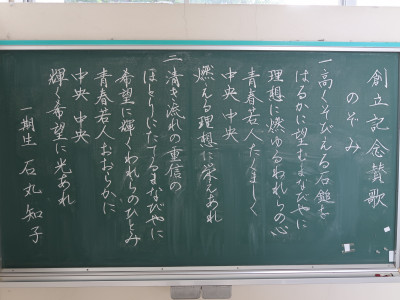 創立記念賛歌
のぞみ
一高くそびえる石鎚を
はるかに望むまなびやに
理想に燃ゆるわれらの心
青春若人たくましく
中央 中央
燃える理想に栄えあれ
二清き流れの重信の
ほとりにたてるまなびやに
希望に輝くわれらのひとみ
青春若人おおらかに
中央 中央
輝く希望に光あれ
一期生 石丸知子